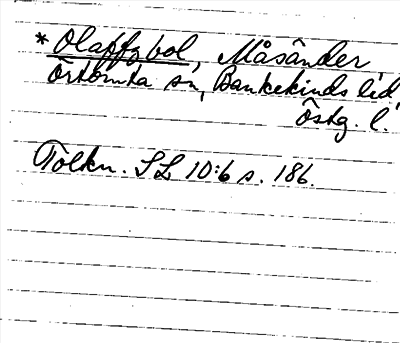 * Olaffzbol, Måsänder
Örtomta sn, Bankekinds hd
Östg. l.
Tolkn. SL 10:6 s. 186.